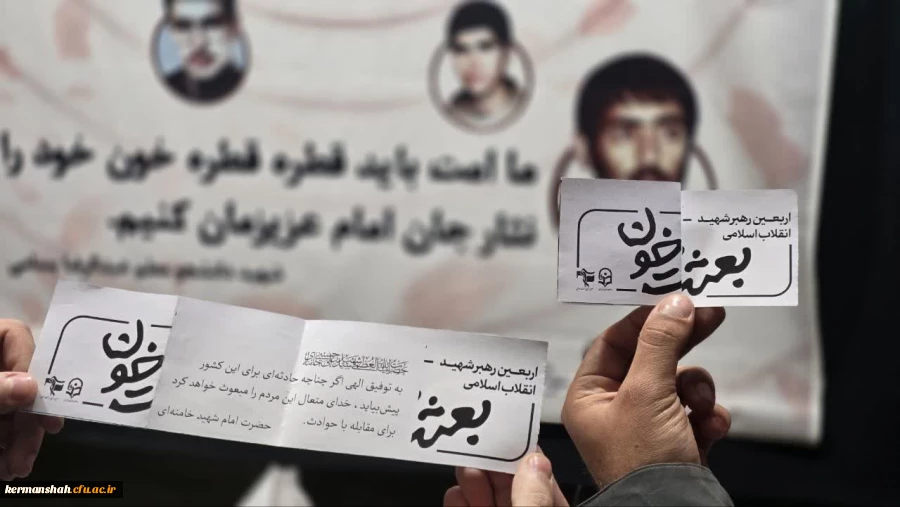 ما امت باید قطره قطره خون خود را
نثار جان امام عزیزمان کنیم.
شهید دانشجو معلم
اربعین رهبر شهید
انقلاب اسلامی
بعثت خون
اربعین رهبر شهید
انقلاب اسلامی
بعثت
به توفیق الهی اگر چنانچه حادثه‌ای برای این کشور
پیش بیاید ، خدای متعال این مردم را مبعوث خواهد کرد
برای مقابله با حوادث.
حضرت امام شهید خامنه‌ای
خون
kermanshah.cfu.ac.ir